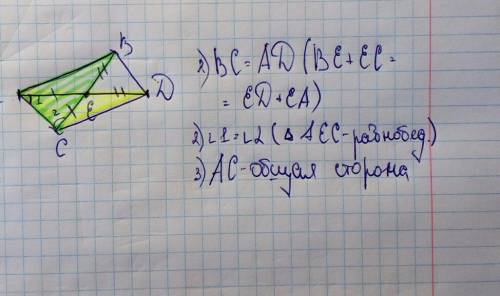 B
D
E
C
1
2
1) BC = AD (BE + EC =
= ED + EA)
2) ∠1 = ∠2 (△ AEC - равнобед.)
3) AC - общая сторона